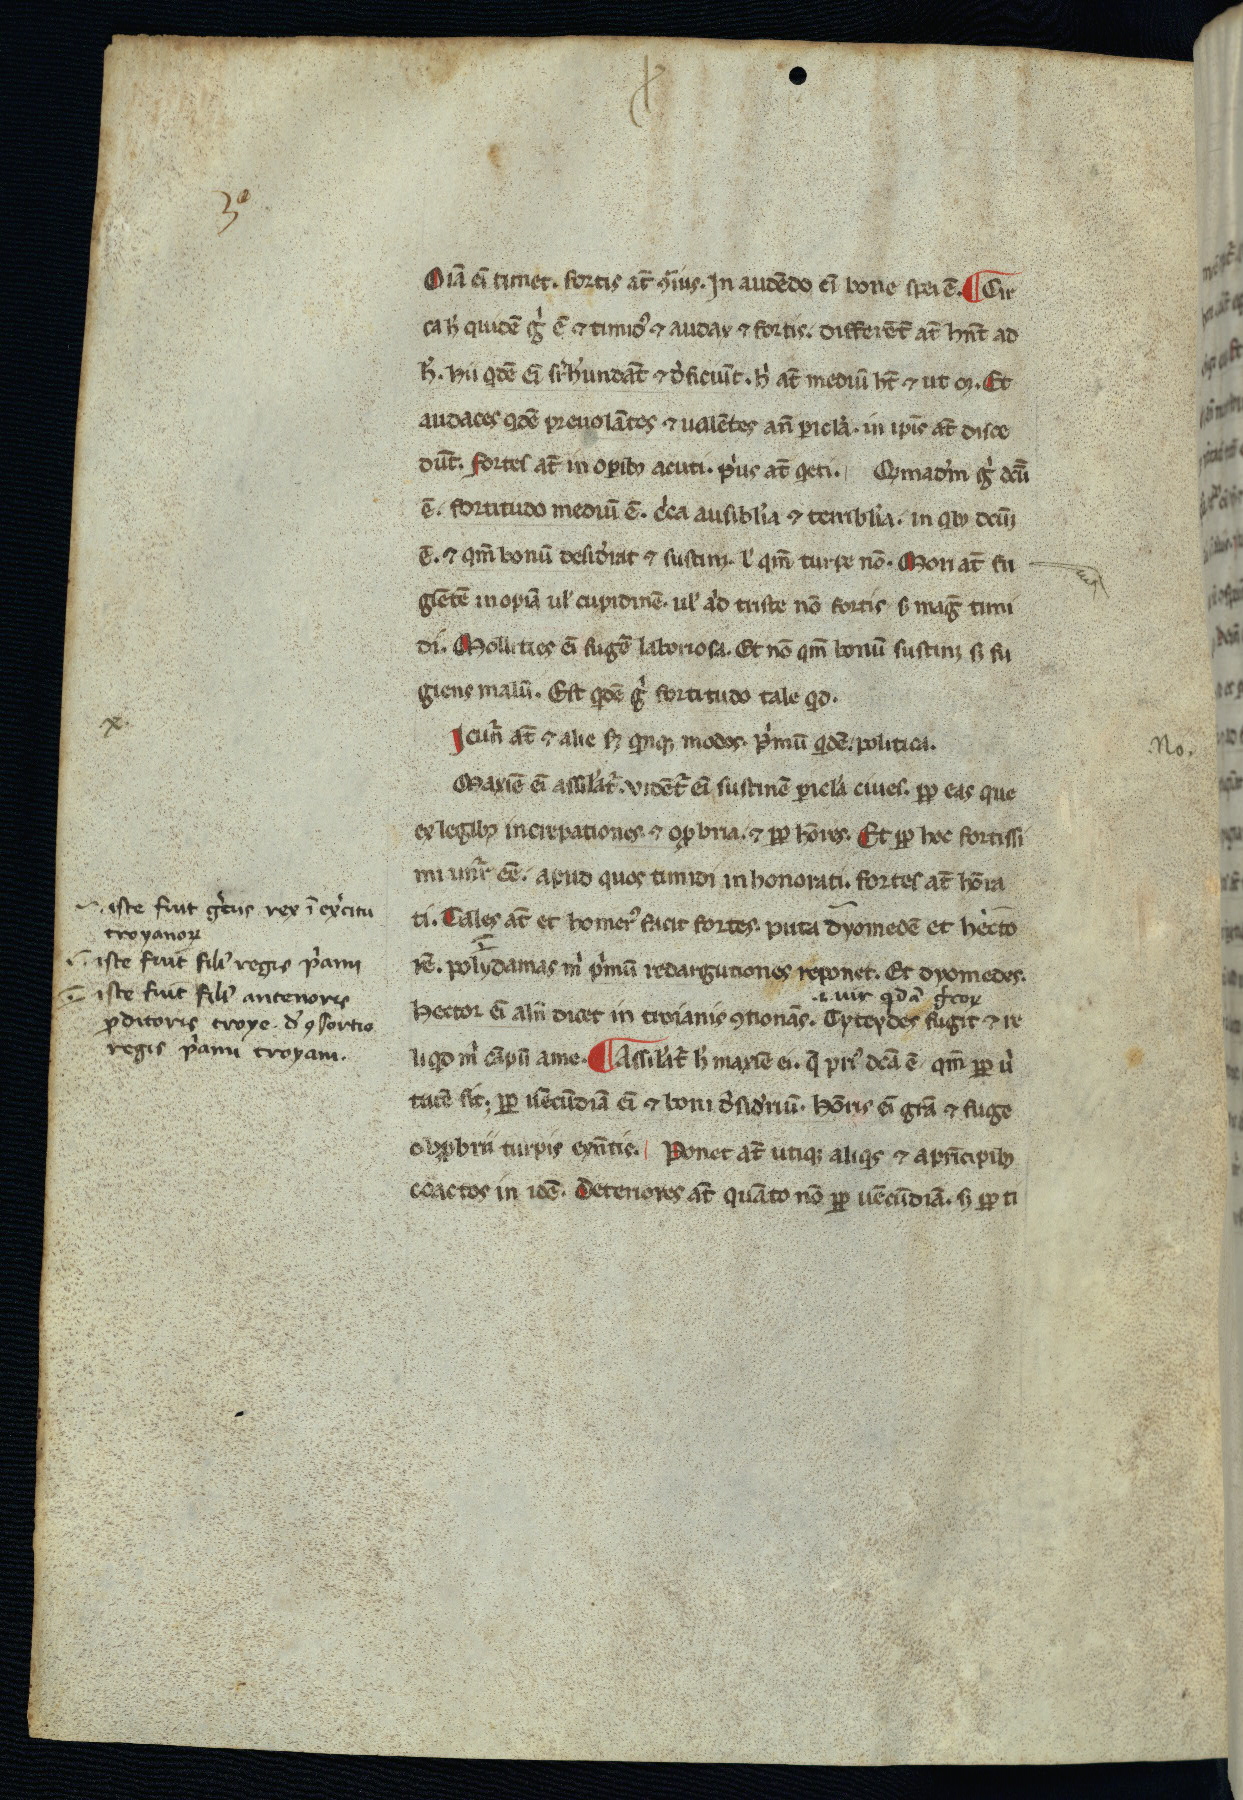 3ᵃ
Oīa eī timet. fortis at̄ ꝯ̄ius. In audēdo eī bone spei ē. ¶ Cir
ca h̄ quidē gͥ ē ⁊ timidꝰ ⁊ audax ⁊ fortis. differēt̄ at̄ hn̄t ad
h̄. hii qͥdē eī suꝑhūndāt ⁊ dꝰficiūt. hͥ at̄ mediū ht̄ ⁊ ut oꝫ. Et
audaces qͥdē preuolātes ⁊ uolētes an̄ ꝑicl̓a. in ip̄is at̄ disce
dūt. fortes at̄ in oꝑibꝫ acuti. pͥus at̄ qͥeti. Quēadm̄ gͥ dcūꝫ
ē. fortitudo mediū ē. cͥca ausibl̓ia ⁊ terribl̓ia. in qͥbꝫ dcūꝫ
ē. ⁊ qm̄ bonū desidꝰat ⁊ sustinꝫ. l̓ qm̄ turpe nō. Mori at̄ fu
giētē inopiā ul̓ cupidinē. ul̓ ad triste nō fortis s̄ maḡ timi
di. Mollities eī fugē laboriosa. Et nō qm̄ bonū sustinꝫ s̄ fu
giens malū. Est qͥdē gͥ fortitudo tale qͥd.
x.
Icūr̄ at̄ ⁊ alie sꝫ qͥnqꝫ modos. pͥmū qͥdē. politica.
No.
Maxīe eī assil̓at̄. vidēt̄ eī sustinē ꝑicl̓a ciues. ꝓp eas que
ex legibꝫ increpationes. ⁊ opꝓbria. ⁊ ꝓp hōres. Et ꝓp hoc fortissi
mi uidn̄r eē. apud quos timidi inhonorati. fortes at̄ hōra
ti. Tales at̄ et homerꝰ facit fortes. puta dyomedē et hecto
rē. polydamas m̄ pͥmū redargutiones reponet. Et dyomedes.
.i. uir qͥdā gͥcoꝝ
hector eī aln̄ dicet in troianis ꝯtionās. Tyteydes fugit ⁊ re
liqͥd m̄ cāpū a me. ¶ Assil̓at̄ h̄ maxīe ei. q̄ priꝰ dcā ē. qm̄ ꝓp uͥ
tutē fit. ꝓp uēcūdiā eī ⁊ boni dꝰsidꝰiū. hōris eī grā ⁊ fuge
obꝓbrii turpis exn̄tis. Ponet at̄ utiqꝫ aliqͥs ⁊ a prīcipibꝫ
coactos in idē. Deteriores at̄ quāto nō ꝓp uēcūdiā. s̄ ꝓp ti
iste fuit gͥcus rex ī exꝰcitu
troyanoꝝ
iste fuit filiꝰ regis pͥami
iste fuit filiꝰ antenoris
ꝓditoris troye. dꝰ ꝯsortio
regis pͥami troyani.